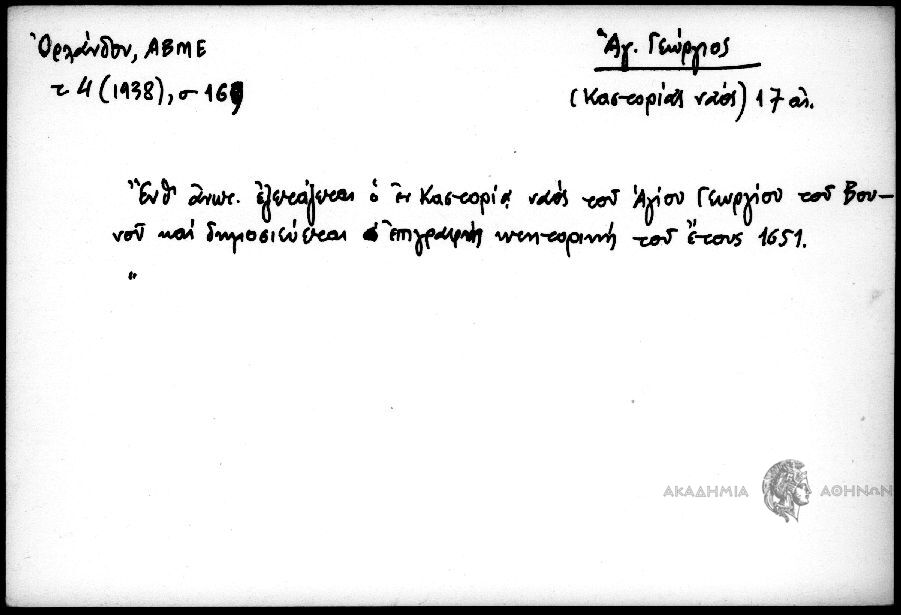 Ὀρλάνδου, ΑΒΜΕ
τ 4 (1938), σ 169
Ἅγ. Γεώργιος
(Καστορίας ναός) 17 αἰ.
Ἔνθ' ἄνωτ. ἐξετάζεται ὁ ἐν Καστορίᾳ ναός τοῦ Ἁγίου Γεωργίου τοῦ Βου-
νοῦ καί δημοσιεύεται ἐπιγραφή κτητορική τοῦ ἔτους 1651.
"
ΑΚΑΔΗΜΙΑ ΑΘΗΝΩΝ